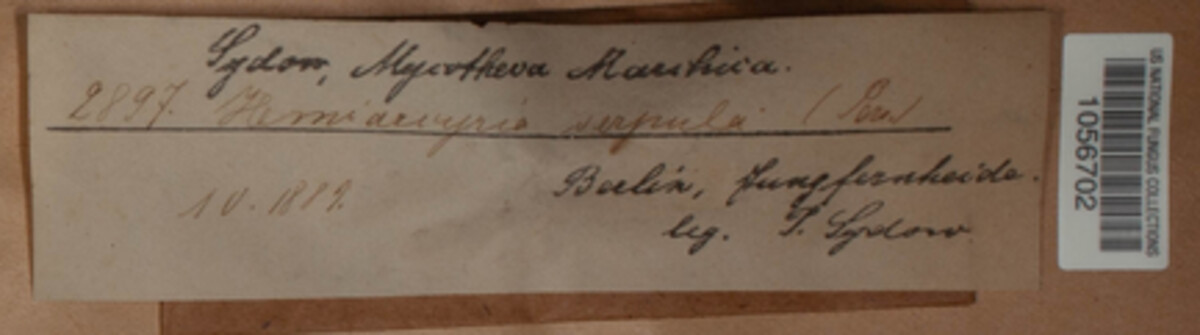 Sydow, Mycotheca Marchica.
2897. Hemiarcyria serpula (
10. 1889.
Berlin, Jungfernheide.
leg. P. Sydow.
US NATIONAL FUNGUS COLLECTIONS
1056702